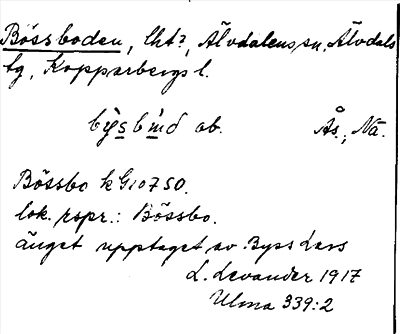 Bössboden, lht?, Älvdalens sn, Älvdals
tg, Kopparbergs l.
ob. Ås., Nä.
Bössbo kG10750.
lok. rspr.: Bössbo.
änget upptaget av Byss Lars
L. Levander 1917
Ulma 339:2